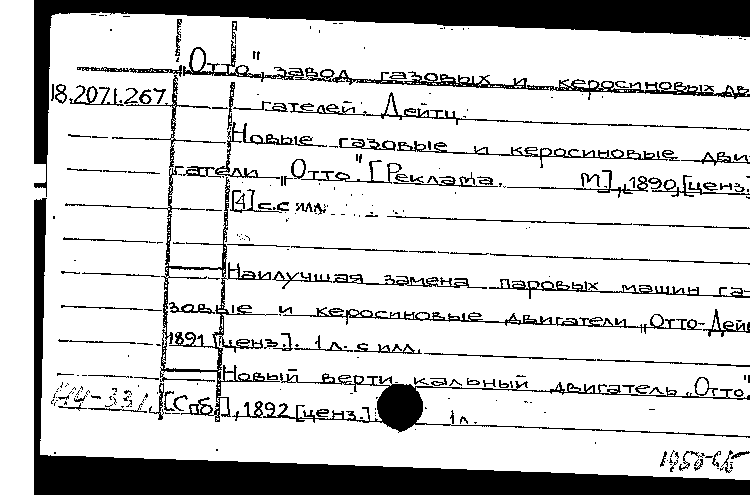 „Отто", завод газовых и керосиновых дв
18.207.1.267. гателей. Дейтц.
Новые газовые и керосиновые дви
гатели „Отто". [Реклама. М.], 1890, [ценз.
[4] с. с илл.
— Наилучшая замена паровых машин га-
зовые и керосиновые двигатели „Отто-Дей
1891 [ценз.]. 1 л. с илл.
— Новый вертикальный двигатель „Отто".
Н4-331. [Спб.], 1892 [ценз.] 1 л.